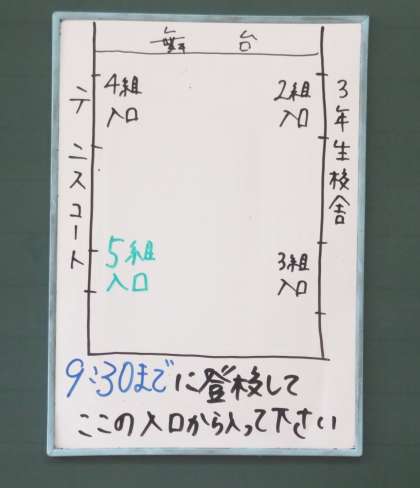 舞台
4組
入口
2組
入口
テニスコート
3年生校舎
5組
入口
3組
入口
9:30までに登校して
ここの入口から入って下さい